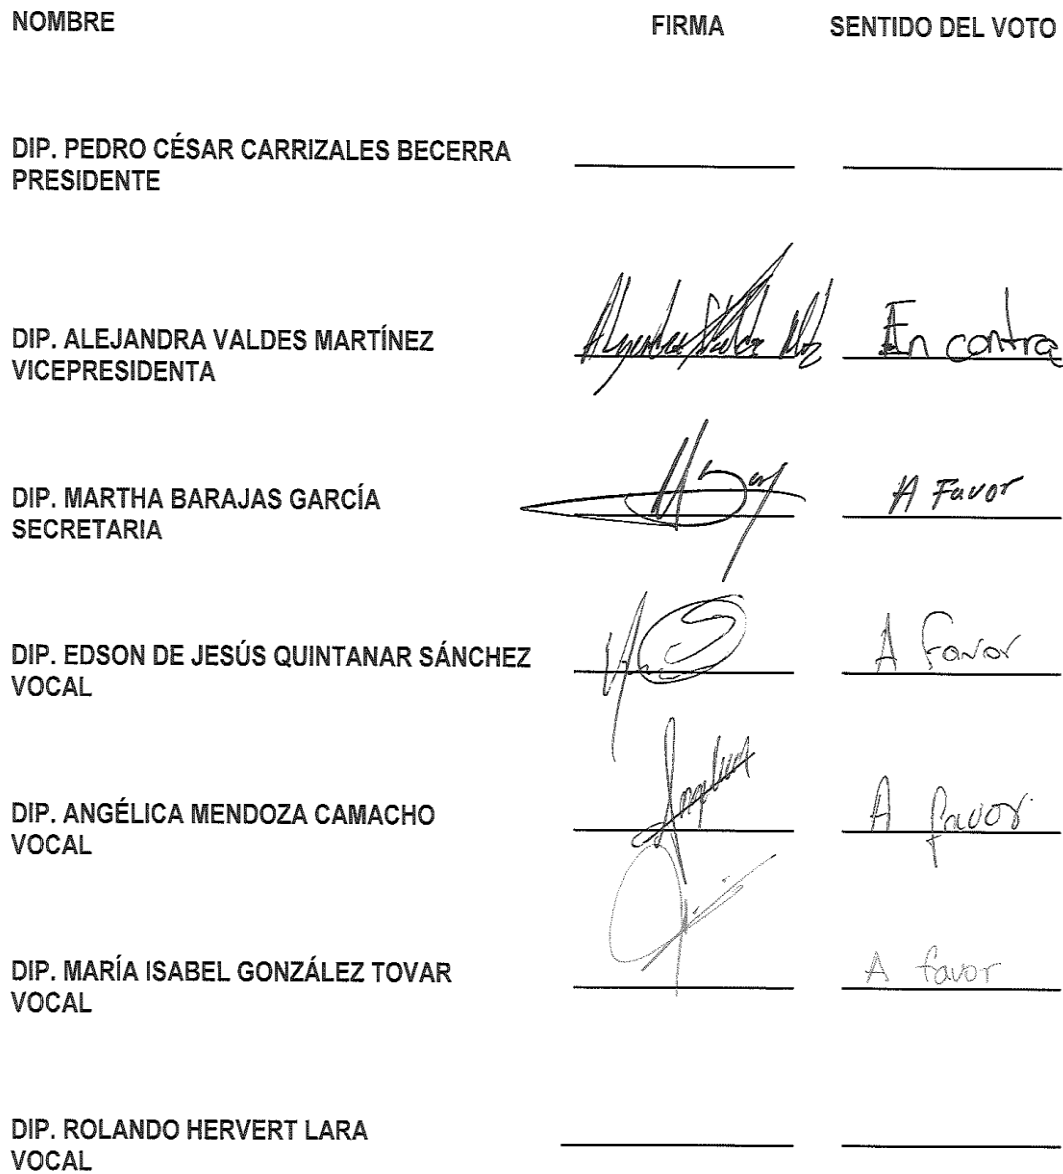 NOMBRE FIRMA SENTIDO DEL VOTO
DIP. PEDRO CÉSAR CARRIZALES BECERRA
PRESIDENTE
DIP. ALEJANDRA VALDES MARTÍNEZ En contra
VICEPRESIDENTA
DIP. MARTHA BARAJAS GARCÍA A Favor
SECRETARIA
DIP. EDSON DE JESÚS QUINTANAR SÁNCHEZ A Favor
VOCAL
DIP. ANGÉLICA MENDOZA CAMACHO Angelica A favor
VOCAL
DIP. MARÍA ISABEL GONZÁLEZ TOVAR A favor
VOCAL
DIP. ROLANDO HERVERT LARA
VOCAL